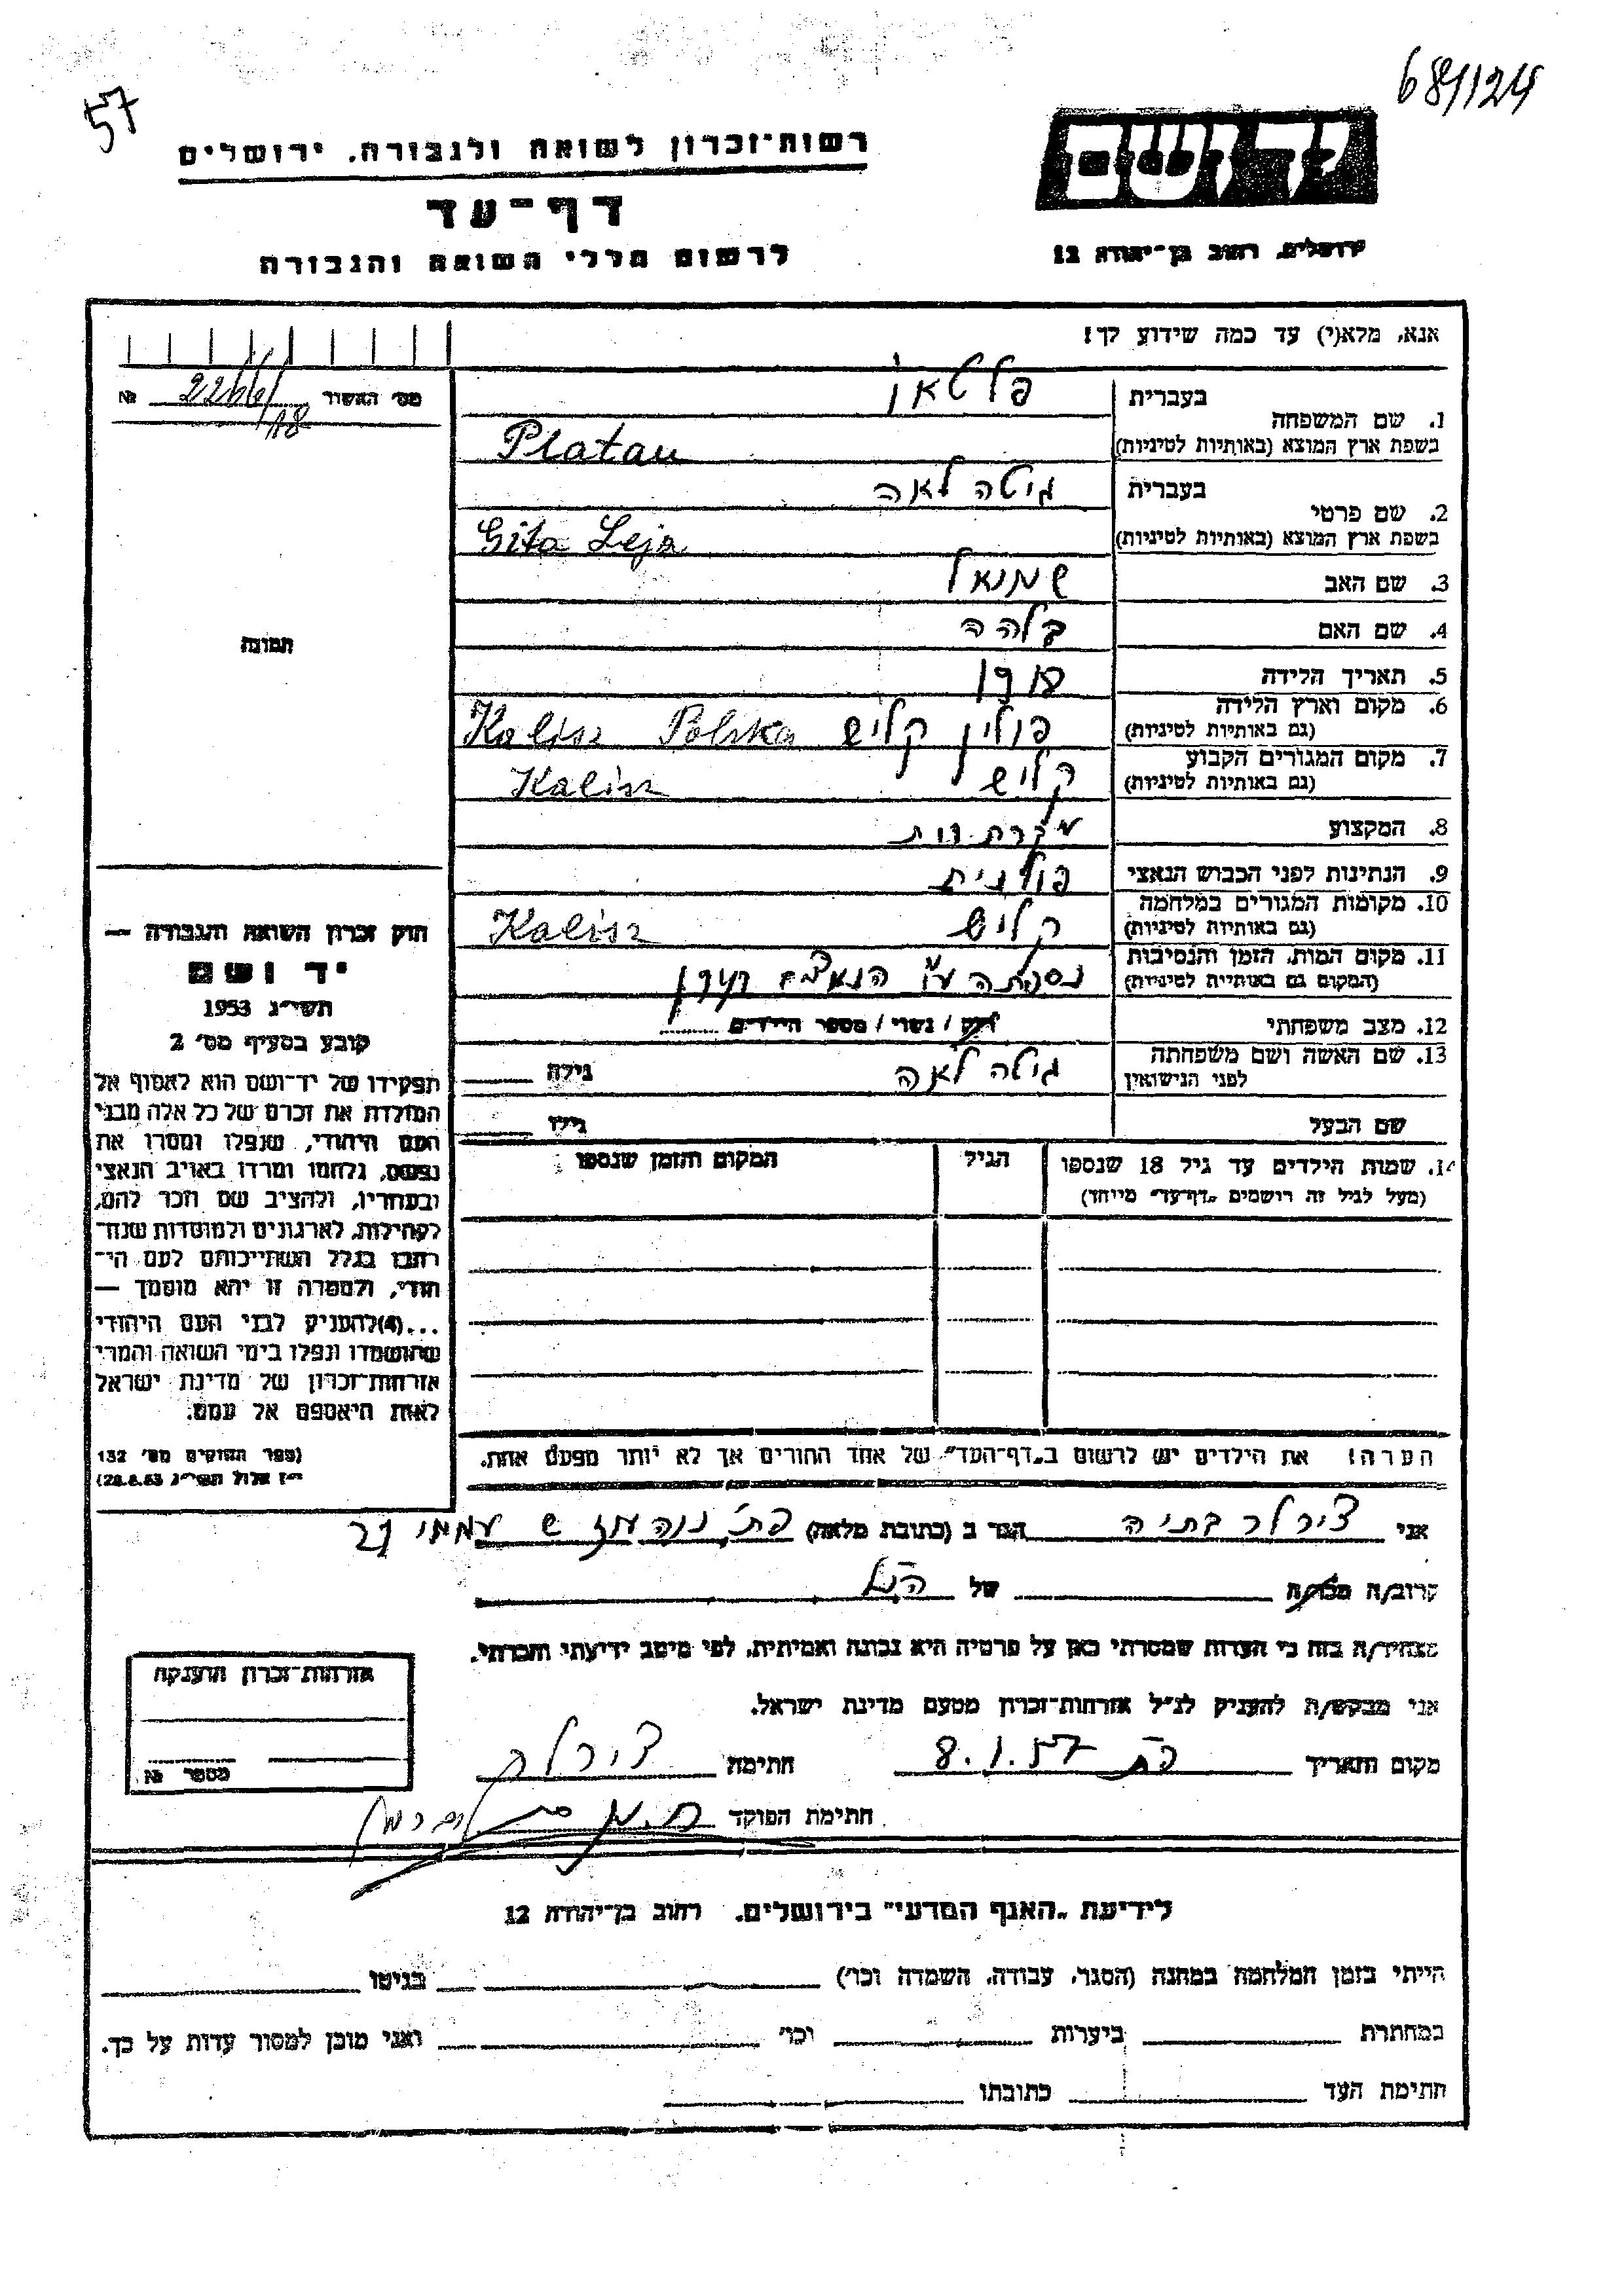 68/124
57
יד ושם
ירושלים, רחוב בן־יהודה 12
רשות־זכרון לשואה ולגבורה, ירושלים
דף־עד
לרשום חללי השואה והגבורה
אנא, מלא(י) עד כמה שידוע לך!
מס׳ האשור № 2266/18
בעברית פלטאו
1. שם המשפחה
בשפת ארץ המוצא (באותיות לטיניות) Platau
בעברית גיטה לאה
2. שם פרטי
בשפת ארץ המוצא (באותיות לטיניות) Gita Leja
3. שם האב שמואל
4. שם האם בלהה
5. תאריך הלידה 1918
6. מקום וארץ הלידה
(גם באותיות לטיניות) פולין קליש Polska Kalisz
7. מקום המגורים הקבוע
(גם באותיות לטיניות) קליש Kalisz
8. המקצוע
9. הנתינות לפני הכבוש הנאצי פולנית
10. מקומות המגורים במלחמה
(גם באותיות לטיניות) קליש Kalisz
11. מקום המות, הזמן והנסיבות
(המקום גם באותיות לטיניות) נספתה ע״י הנאצים
12. מצב משפחתי רוק / נשוי / מספר הילדים
13. שם האשה ושם משפחתה
לפני הנישואין גיטה לאה גילה
שם הבעל גילו
14. שמות הילדים עד גיל 18 שנספו
(מעל לגיל זה רושמים „דף־עד״ מיוחד)
הגיל
המקום והזמן שנספו
הערה! את הילדים יש לרשום ב„דף־העד״ של אחד ההורים אך לא יותר מפעם אחת.
תמונה
חוק זכרון השואה והגבורה —
יד ושם
תשי״ג 1953
קובע בסעיף מס׳ 2
תפקידו של יד־ושם הוא לאסוף אל
המולדת את זכרם של כל אלה מבני
העם היהודי, שנפלו ומסרו את
נפשם, נלחמו ומרדו באויב הנאצי
ובעוזריו, ולהציב שם וזכר להם,
לקהילות, לארגונים ולמוסדות שנח־
רבו בגלל השתייכותם לעם הי־
הודי, ולמטרה זו יהא מוסמך —
...(4)להעניק לבני העם היהודי
שהושמדו ונפלו בימי השואה והמרי
אזרחות־זכרון של מדינת ישראל
לאות היאספם אל עמם.
(ספר החוקים מס׳ 132
י״ז אלול תשי״ג 28.8.53)
אני צירלר בתיה הגר ב (כתובת מלאה) פת׳ נוה עוז ש עממי 21
קרוב/ה מכר/ה של הנ״ל
מצהיר/ה בזה כי העדות שמסרתי כאן על פרטיה היא נכונה ואמיתית, לפי מיטב ידיעתי והכרתי.
אני מבקש/ת להעניק לנ״ל אזרחות־זכרון מטעם מדינת ישראל.
מקום ותאריך פת 8.1.57 חתימה צירלר
חתימת הפוקד
אזרחות־זכרון הוענקה
מספר №
לידיעת „האגף המדעי״ בירושלים, רחוב בן־יהודה 12
הייתי בזמן המלחמה במחנה (הסגר, עבודה, השמדה וכו׳) בגיטו
במחתרת ביערות וכו׳ ואני מוכן למסור עדות על כך.
חתימת העד כתובתו